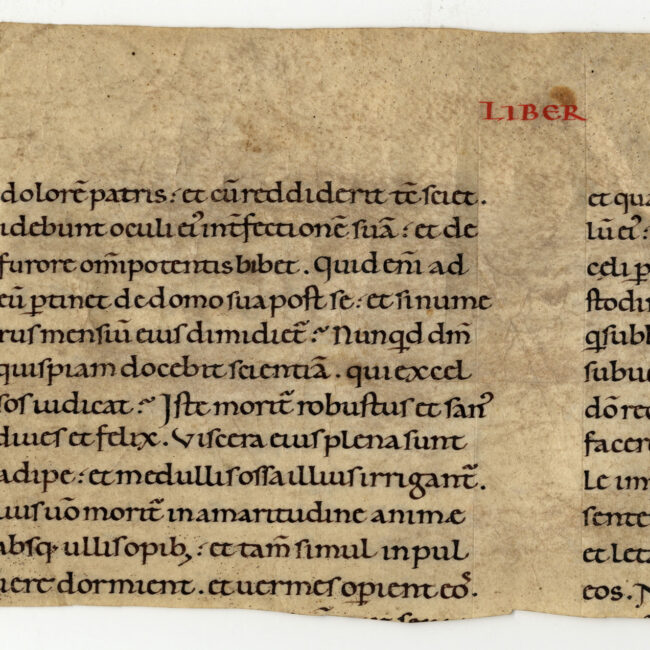 LIBER
dolorē patris : et cū reddiderit tc̄ sciet .
idebunt oculi ei᾽ int̄fectionē suā : et de
furore om̄ipotentis bibet . Quid em̄ ad
eū ꝑtinet de domo sua post se : et si nume
rus mensiū eius dimidiet̄ ? Nunqd dm̄
quispiam docebit scientiā . qui excel
sos iudicat ? Iste morit̄ robustus et san᾽
diues et felix . Viscera eius plena sunt
adipe : et medullis ossa illius irrigant̄ .
uius uō morit̄ in amaritudine animæ
absq· ullis opib; : et tam̄ simul in pul
uere dormient . et uermes oꝑient eos᾽ .
et qua
lū ei᾽ :
cęli p
stodi
qsubl
subue
dō rec
facer
Le im
sente
et leta
eos . N